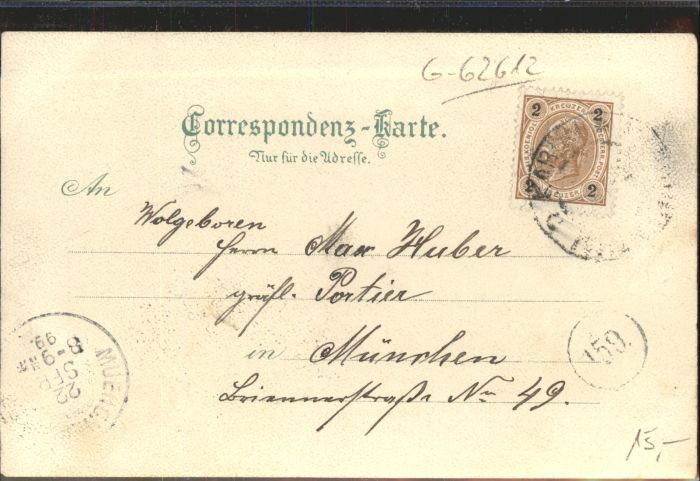 G-62612
Correspondenz-Karte.
Nur für die Adresse.
2 KREUZER 2
2 KREUZER 2
An
Wolgeboren
Herrn Max Huber
gräfl. Portier
in München
Briennerstraße No 49.
MUENC
22
SEP
8-9 NM
99.
159.
15,-